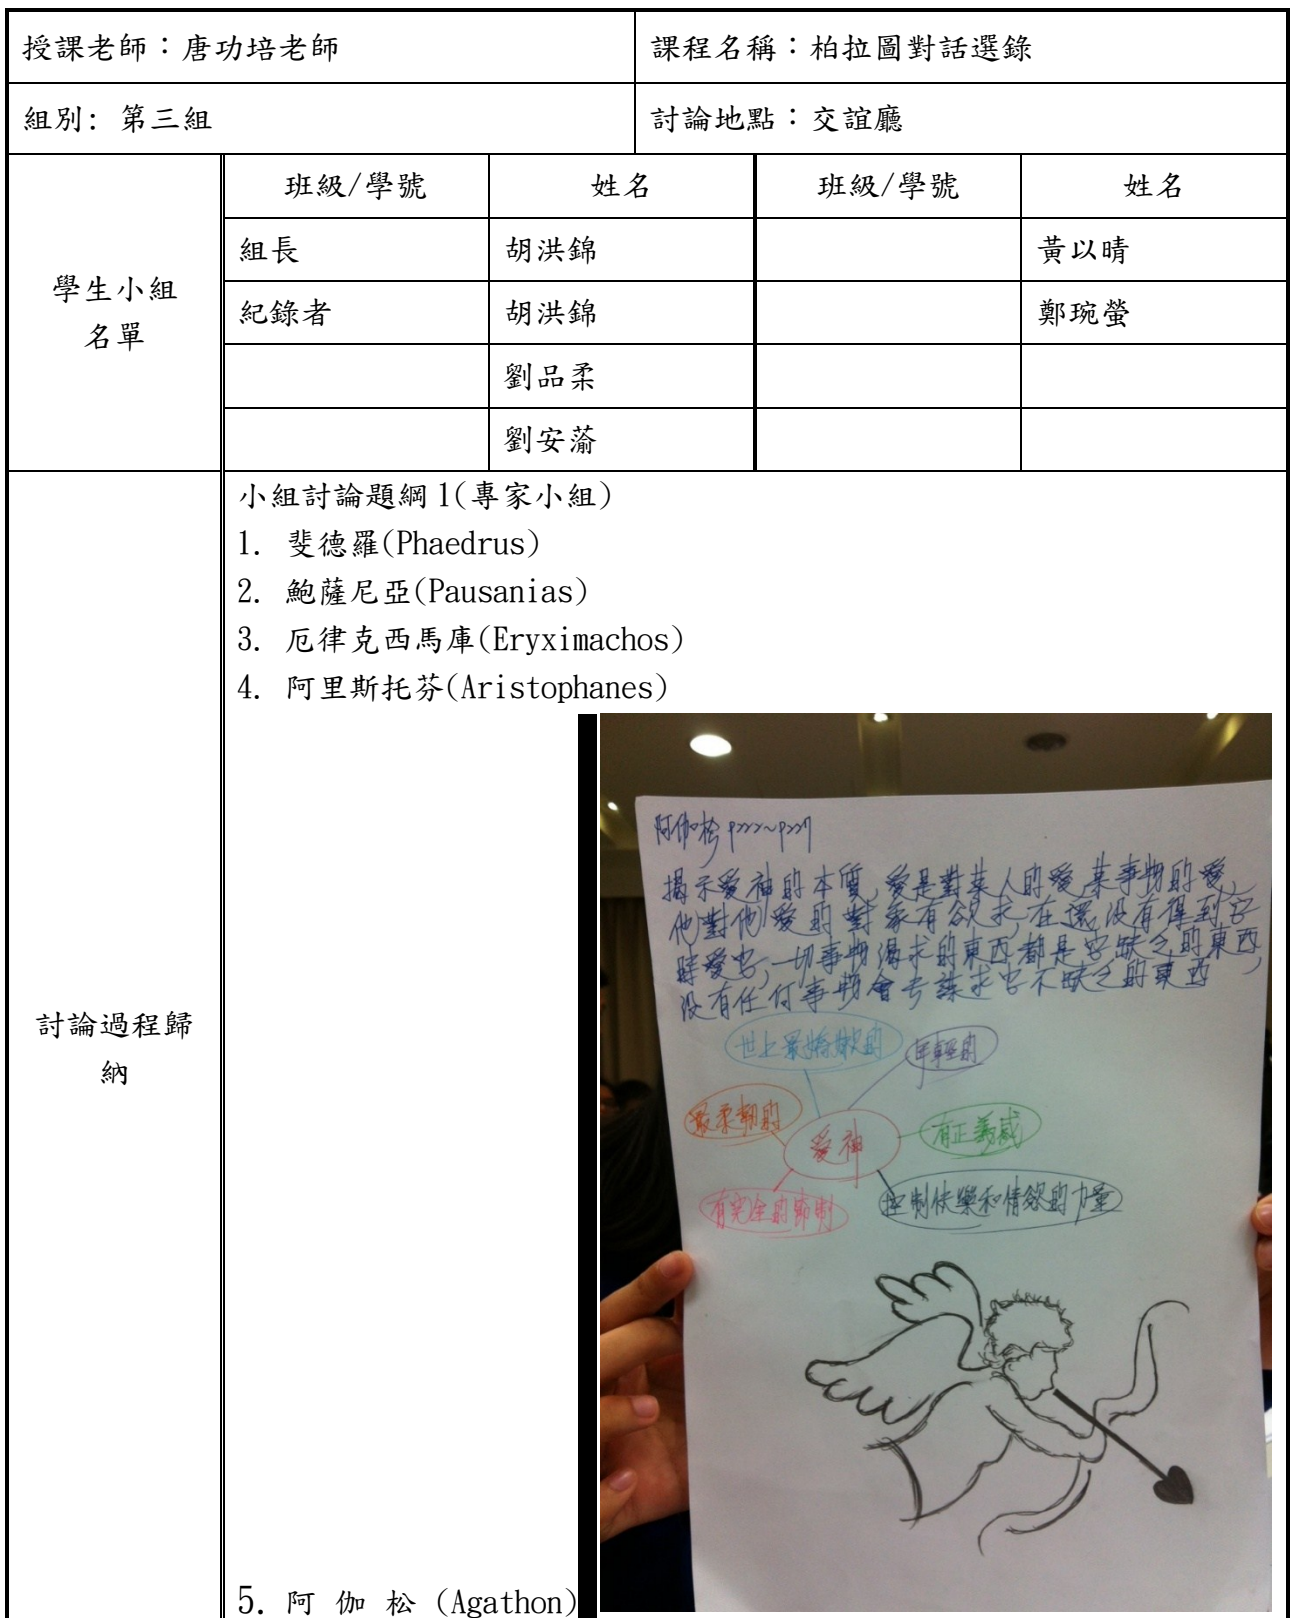 授課老師：唐功培老師
課程名稱：柏拉圖對話選錄
組別: 第三組
討論地點：交誼廳
學生小組
名單
班級/學號 姓名 班級/學號 姓名
組長 胡洪錦 黃以晴
紀錄者 胡洪錦 鄭琬螢
劉品柔
劉安蕍
討論過程歸
納
小組討論題綱1(專家小組)
1. 斐德羅(Phaedrus)
2. 鮑薩尼亞(Pausanias)
3. 厄律克西馬庫(Eryximachos)
4. 阿里斯托芬(Aristophanes)
阿伽松 p222~p227
揭示愛神的本質,愛是對某人的愛,某事物的愛,
他對他愛的對象有欲求,在還沒有得到它
時愛它,一切事物渴求的東西都是它缺乏的東西,
沒有任何事物會去謀求它不缺乏的東西
世上最嬌嫩的
年輕的
最柔韌的
愛神
有正義感
有完全的節制
控制快樂和情慾的力量
5. 阿伽松 (Agathon)